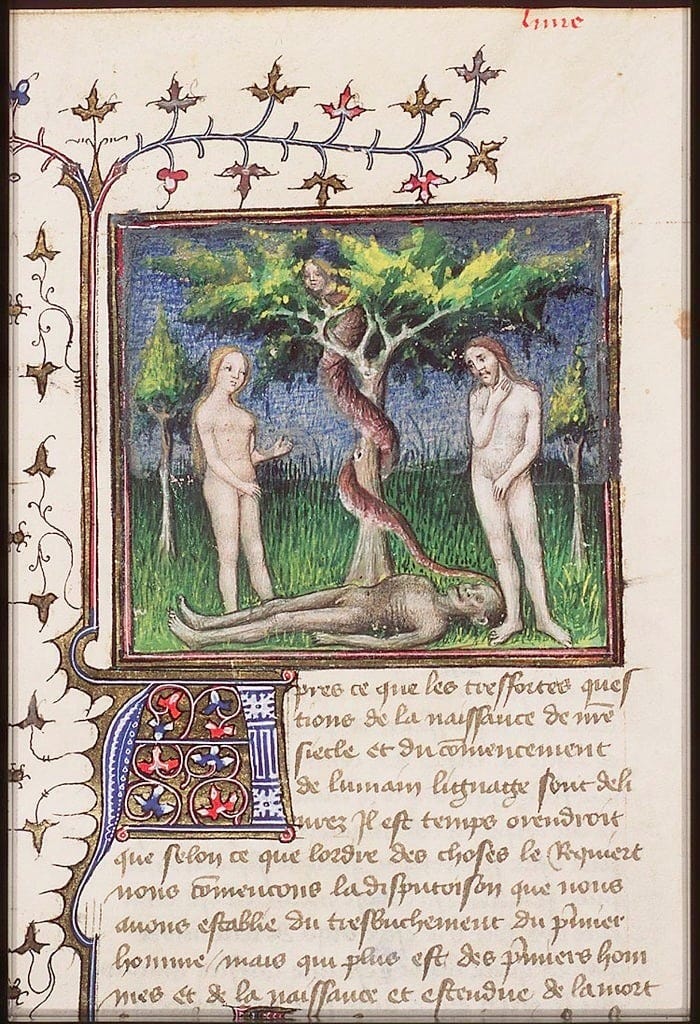 liure
Apres ce que les tresfortes ques
tions de la naissance de nre
siecle et du comencement
de lumain lignaige sont deli
urez Il est temps orendroit
que selon ce que lordre des choses le Requiert
nous comencons la disputoison que nous
auons establie du tresbuchement du pmier
homme / mais qui plus est des pmiers hom
mes et de la naissance et estendue de la mort